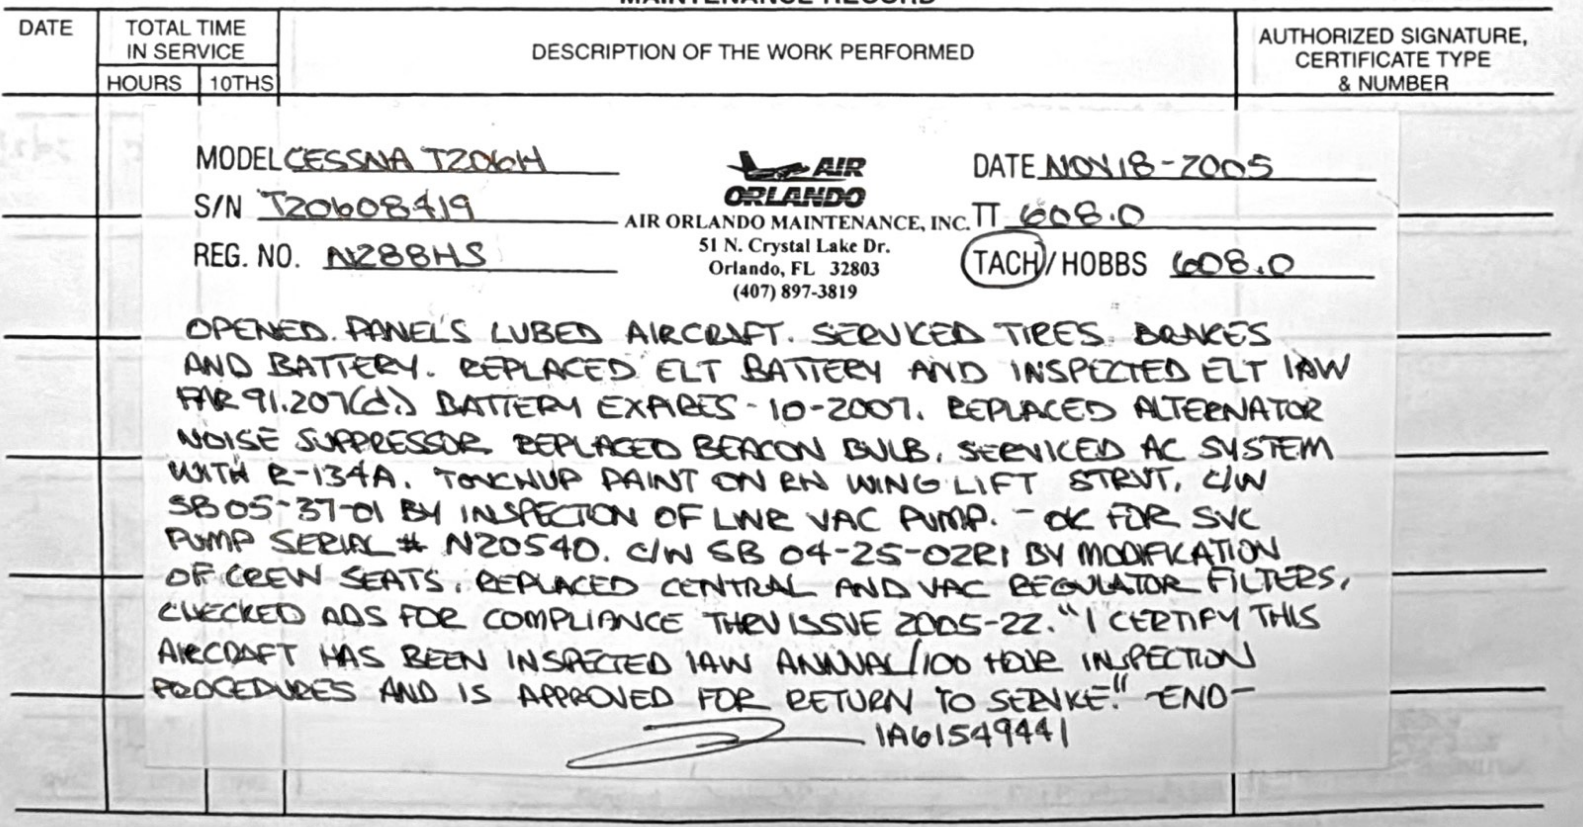 MAINTENANCE RECORD
DATE
TOTAL TIME
IN SERVICE
HOURS 10THS
DESCRIPTION OF THE WORK PERFORMED
AUTHORIZED SIGNATURE,
CERTIFICATE TYPE
& NUMBER
MODEL CESSNA T206H
S/N T20608419
REG. NO. N288HS
AIR
ORLANDO
AIR ORLANDO MAINTENANCE, INC.
51 N. Crystal Lake Dr.
Orlando, FL 32803
(407) 897-3819
DATE NOV 18-2005
TT 608.0
TACH/HOBBS 608.0
OPENED PANELS LUBED AIRCRAFT. SERVICED TIRES BRAKES
AND BATTERY. REPLACED ELT BATTERY AND INSPECTED ELT IAW
FAR 91.207(d.) BATTERY EXPIRES-10-2007. REPLACED ALTERNATOR
NOISE SUPPRESSOR REPLACED BEACON BULB. SERVICED AC SYSTEM
WITH R-134A. TOUCHUP PAINT ON WING LIFT STRUT. C/W
SB 05-37-01 BY INSPECTION OF VAC PUMP. - OK FOR SVC
PUMP SERIAL # N20540. C/W SB 04-25-02R1 BY MODIFICATION
OF CREW SEATS. REPLACED CENTRAL AND VAC REGULATOR FILTERS.
CHECKED ADS FOR COMPLIANCE THRU ISSUE 2005-22. "I CERTIFY THIS
AIRCRAFT HAS BEEN INSPECTED IAW ANNUAL/100 HOUR INSPECTION
PROCEDURES AND IS APPROVED FOR RETURN TO SERVICE." -END-
IA61549441